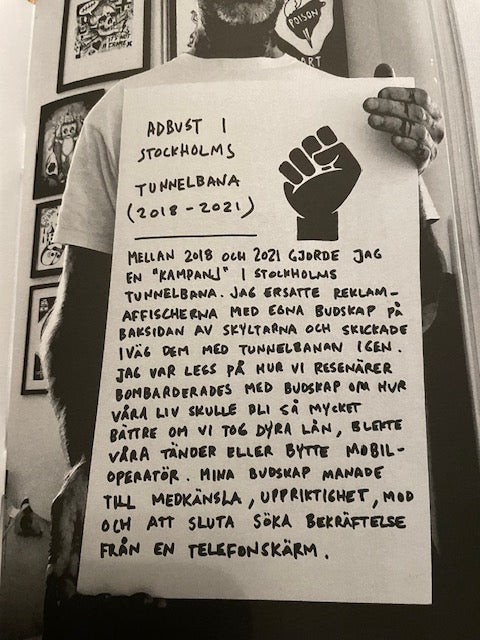 POISON
ART
IT'S NOT
A CRIME
ADBUST I
STOCKHOLMS
TUNNELBANA
(2018-2021)
MELLAN 2018 OCH 2021 GJORDE JAG
EN "KAMPANJ" I STOCKHOLMS
TUNNELBANA. JAG ERSATTE REKLAM-
AFFISCHERNA MED EGNA BUDSKAP PÅ
BAKSIDAN AV SKYLTARNA OCH SKICKADE
IVÄG DEM MED TUNNELBANAN IGEN.
JAG VAR LESS PÅ HUR VI RESENÄRER
BOMBARDERADES MED BUDSKAP OM HUR
VÅRA LIV SKULLE BLI SÅ MYCKET
BÄTTRE OM VI TOG DYRA LÅN, BLEKTE
VÅRA TÄNDER ELLER BYTTE MOBIL-
OPERATÖR. MINA BUDSKAP MANADE
TILL MEDKÄNSLA, UPPRIKTIGHET, MOD
OCH ATT SLUTA SÖKA BEKRÄFTELSE
FRÅN EN TELEFONSKÄRM.